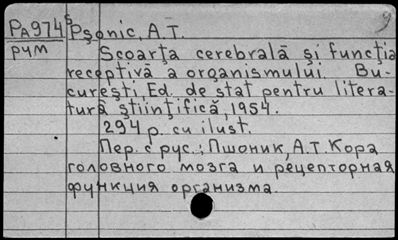 PA974s Pşonic, A.T. 9
рум
Scoarţa cerebrală şi funcţia
receptivă a organismului. Bu-
cureşti, Ed. de stat pentru litera-
tură ştiinţifică, 1954.
294 p. cu ilust.
Пер. с рус.: Пшоник, А.Т. Кора
головного мозга и рецепторная
функция организма.